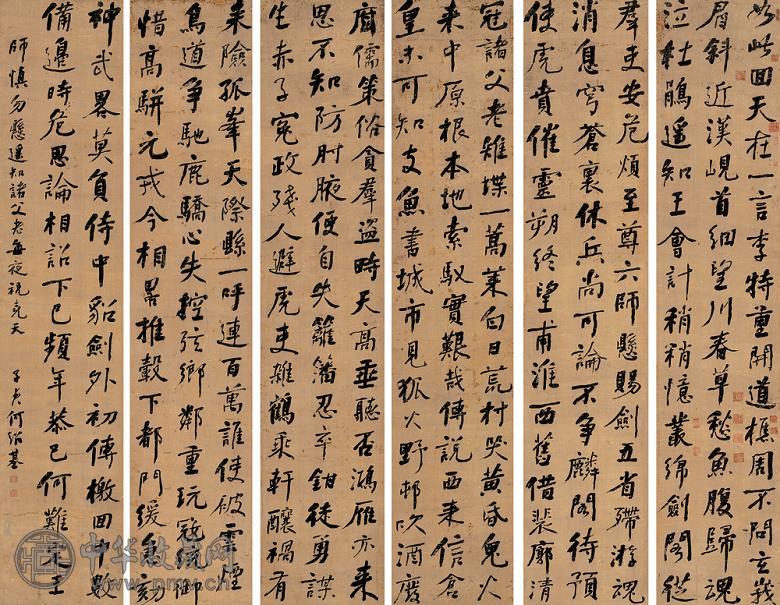 如此回天在一言李特重開道樵周不問玄
屑斜近漢峴首細望川春草愁魚腹歸魂
泣杜鵑遥知王會計稍稍憶叢綿劍閣從
羣吏安危煩至尊六師懸賜劍五省殢游魂
消息穹蒼裏休兵尚可論不爭麟閣待預
使虎賁催靈朔終望甫淮西舊借裴廓清
冠諸父老雉堞一萬萊白日荒村哭黃昏鬼火
來中原根本地索馭實艱哉傳說西來信倉
皇未可知支魚書城市見狐火野邨吹酒廢
腐儒策俗貪羣盜時天高垂聽否鴻雁亦來
思不知防肘腋便自失籬籓忍卒鉗徒勇謀
生赤子冤政殘人避虎吏雜鶴乘軒釀禍有
來險孤峯天際縣一呼連百萬誰使破雲煙
鳥道爭馳鹿驕心失控弦鄉鄰重玩寇御
惜高駢元戎今相畧推轂下都門緩急刻
神武畧莫負侍中貂劍外初傳檄回中數
備邊時危思論相詔下已頻年恭己何難王
師慎勿懸遥知諸父老每夜祝堯天
子貞何紹基
中华数藏网
www.pmw.cn